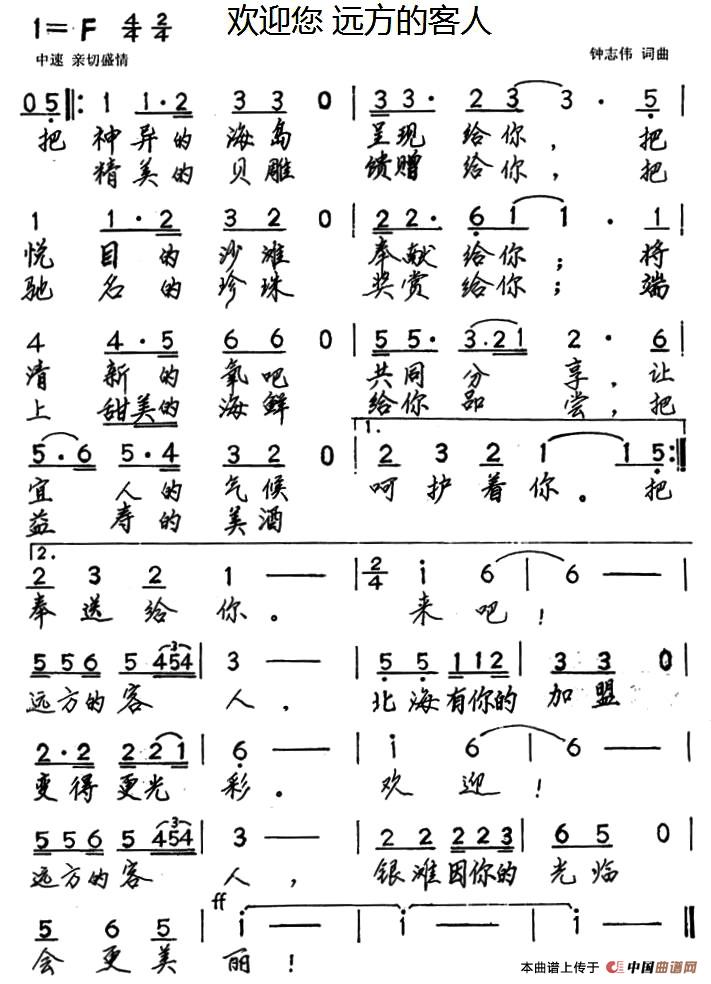 欢迎您 远方的客人
1=F 4/4 2/4
中速 亲切盛情
钟志伟 词曲
05‖: 1 1·2 3 3 0 | 3 3· 2 3 3· 5 |
把 神异的 海岛 呈现 给你, 把
精美的 贝雕 馈赠 给你, 把
1 1·2 3 2 0 | 2 2· 6 1 1· 1 |
悦 目的 沙滩 奉献 给你; 将
驰 名的 珍珠 奖赏 给你; 端
4 4·5 6 6 0 | 5 5· 3·21 2· 6 |
清 新的 氧吧 共同 分 享, 让
上 甜美的 海鲜 给你 品 尝, 把
5·6 5·4 3 2 0 | 1. 2 3 2 1 1 5 :‖
宜 人的 气候 呵护着你。 把
益 寿的 美酒
2. 2 3 2 1 — | 2/4 i 6 | 6 — |
奉送给 你。 来吧!
5 5 6 5 454 | 3 — | 5 5 112 | 3 3 0 |
远方的客 人, 北海有你的 加盟
2·2 2 2 1 | 6 — | i 6 | 6 — |
变得更光 彩。 欢迎!
5 5 6 5 454 | 3 — | 2 2 223 | 6 5 0 |
远方的客 人, 银滩因你的 光临
ff
5 6 5 | i — | i — | i — ‖
会更美 丽!
本曲谱上传于 中国曲谱网